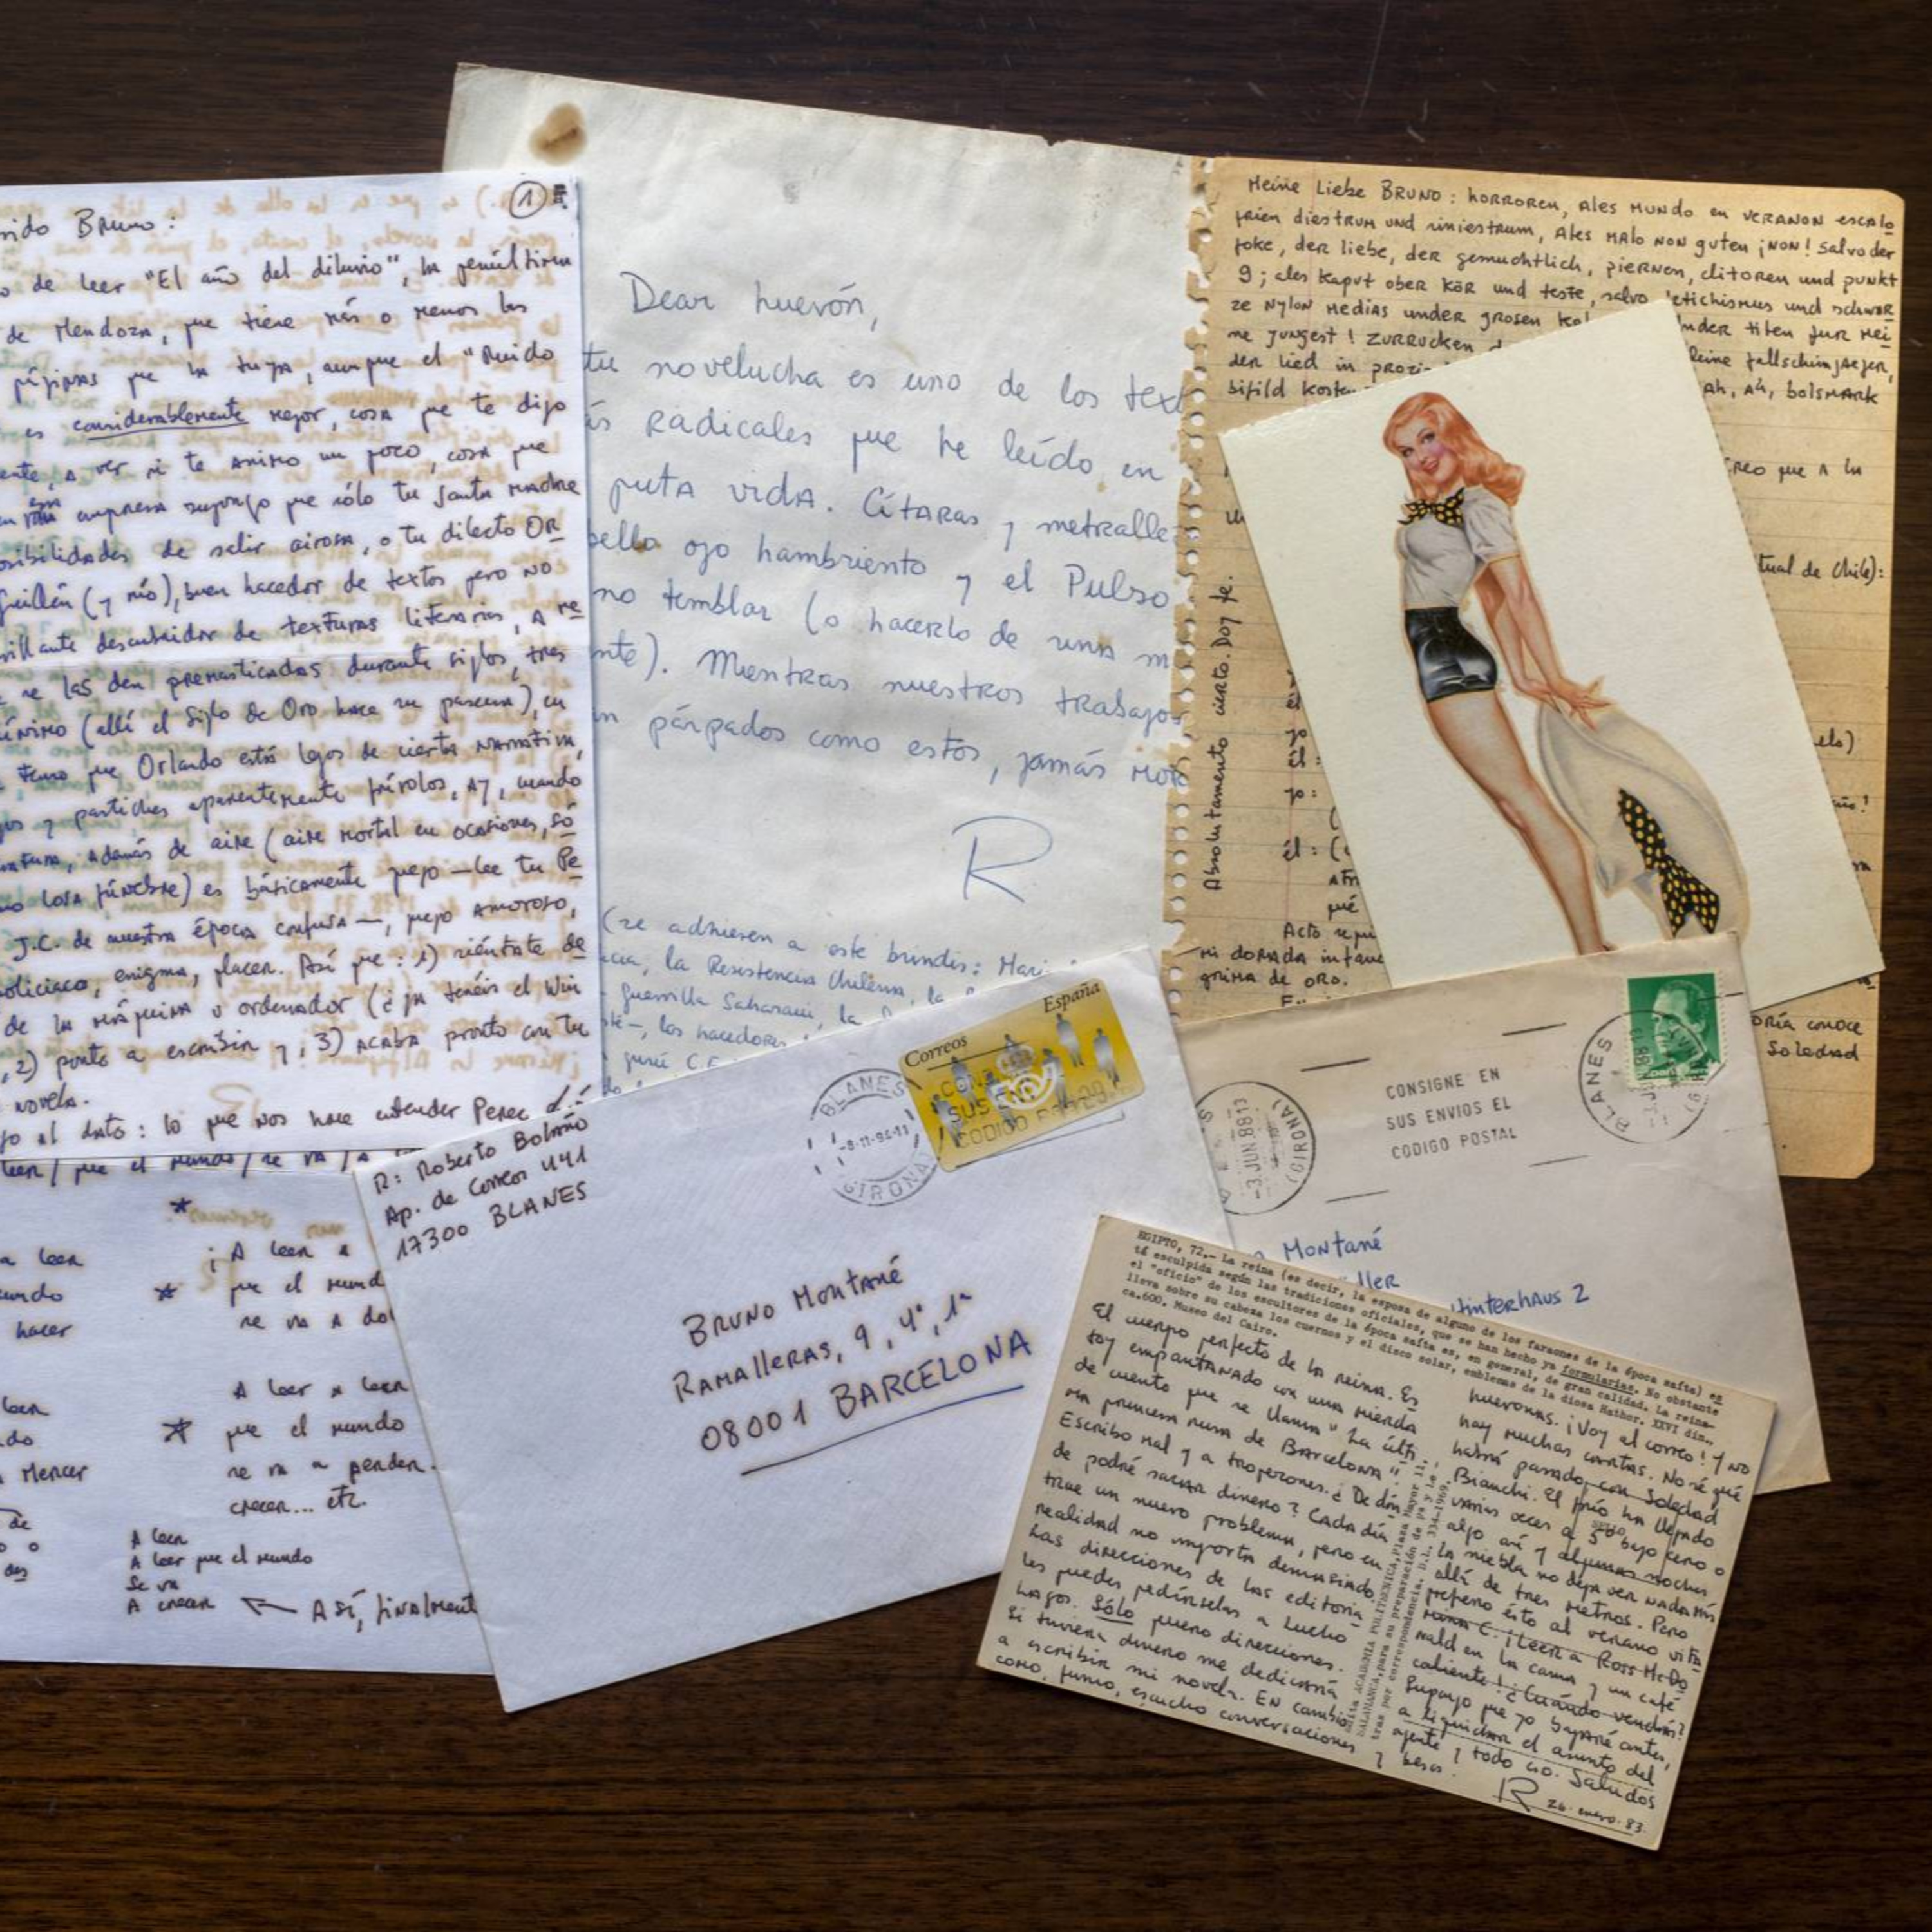 1
rido Bruno:
de leer "El año del diluvio", la penúltima
de Mendoza, que tiene más o menos las
páginas que la tuya, aunque el "Ruido
es considerablemente mejor, cosa que te digo
ente, a ver si te animo un poco, cosa que
esa empresa supongo que sólo tu santa madre
osibilidades de salir airosa, o tu dilecto OR
Guillén (y mío), buen hacedor de textos pero NO
rillante descubridor de texturas literarias, A re
se las den premasticadas durante siglos, tres
ínimo (allí el Siglo de Oro hace su pascua), en
temo que Orlando está lejos de cierta narrativa,
gos y pastiches aparentemente frívolos, Ay, cuando
ratura, además de aire (aire mortal en ocasiones, só
mo losa fúnebre) es básicamente juego —lee tu Pe
J.C. de nuestra época confusa—, juego amoroso,
oliciaco, enigma, placer. Así que: 1) siéntate de
de la máquina u ordenador (¿ya tenéis el Win
, 2) ponte a escribir y, 3) acaba pronto con tu
novela.
go al dato: lo que nos hace entender Perec
leer / que el mundo / se va / a
*
a leer
undo
hacer
¡A leer a
* que el mund
se va a do
leer
do
a Mercer
A leer a leer
* que el mundo
se va a perder.
crecer... etc.
de
o o
des
A leer
A leer que el mundo
Se va
A crecer ← Así, finalment
Dear huevón,
tu novelucha es uno de los text
ás radicales que he leído en
puta vida. Cítaras y metralle
bello ojo hambriento y el Pulso
no temblar (o hacerlo de una m
nte). Mientras nuestros trabajos
n párpados como estos, jamás mor
R
(se adhieren a este brindis: Mari
cia, la Resistencia Chilena, la
guerrilla Saharaui, la
té—, los hacedores
Meine Liebe BRUNO: horroren, Ales Mundo en VERANON escalo
frien diestrum und siniestrum, Ales MAlo NON guten ¡NON! salvo der
foke, der liebe, der gemuchtlich, piernen, clitoren und punkt
9; ales Kaput ober kör und teste, salvo fetichismus und schwar
ze Nylon Medias under grosen
under titen fur mei
ne Jungest! ZURRUCKEN
kleine fallschimjaejer,
der lied in
bifild kosten
Ah, Ah, bolsmark
creo que a la
tual de Chile):
Absolutamente cierto. Doy fe.
él
yo
elo)
él:
yo:
(
él: (
Acto segui
mi dorada infan
grima de oro.
oría conoce
Soledad
Correos España
CONSIGNE EN
SUS ENVIOS EL
CODIGO POSTAL
BLANES
-9-11-94-11
(GIRONA)
R: Roberto Bolaño
Ap. de Correos 441
17300 BLANES
BRUNO MONTANÉ
RAMALLERAS, 9, 4º, 1ª
08001 BARCELONA
-3.JUN.88 13
(GIRONA)
CONSIGNE EN
SUS ENVIOS EL
CODIGO POSTAL
BLANES
Montané
ller
Hinterhaus 2
EGIPTO, 72.- La reina (es decir, la esposa de alguno de los faraones de la época saíta) es
tá esculpida según las tradiciones oficiales, que se han hecho ya formularias. No obstante
el "oficio" de los escultores de la época saíta es, en general, de gran calidad. La reina-
lleva sobre su cabeza los cuernos y el disco solar, emblemas de la diosa Hathor. XXVI din.,
ca.600. Museo del Cairo.
El cuerpo perfecto de la reina. Es
toy empantanado con una mierda
de cuento que se llama "La últi
ma princesa rusa de Barcelona".
Escribo mal y a tropezones. ¿De dón
de podré sacar dinero? Cada día
trae un nuevo problema, pero en
realidad no importa demasiado.
Las direcciones de las editoria
les puedes pedírselas a Lucho
Lagos. Sólo quiero direcciones.
Si tuviera dinero me dedicaría
a escribir mi novela. En cambio
como, fumo, escucho conversaciones
Edita ACADEMIA POLITECNICA, Plaza Mayor 11,
SALAMANCA, para su preparación de
tras por correspondencia. D.L. 334-1969.
huevonas. ¡Voy al correo! Y no
hay muchas cartas. No sé qué
habrá pasado con Soledad
Bianchi. El frío ha llegado
varias veces a 5º bajo cero o
algo así y algunas noches
la niebla no deja ver nada más
allá de tres metros. Pero
prefiero ésto al verano vita
mina C. ¡Leer a Ross McDo
nald en la cama y un café
caliente! ¿Cuándo vendrás?
Supongo que yo bajaré antes,
a liquidar el asunto del
agente y todo eso. Saludos
y besos.
R
26. enero. 83.